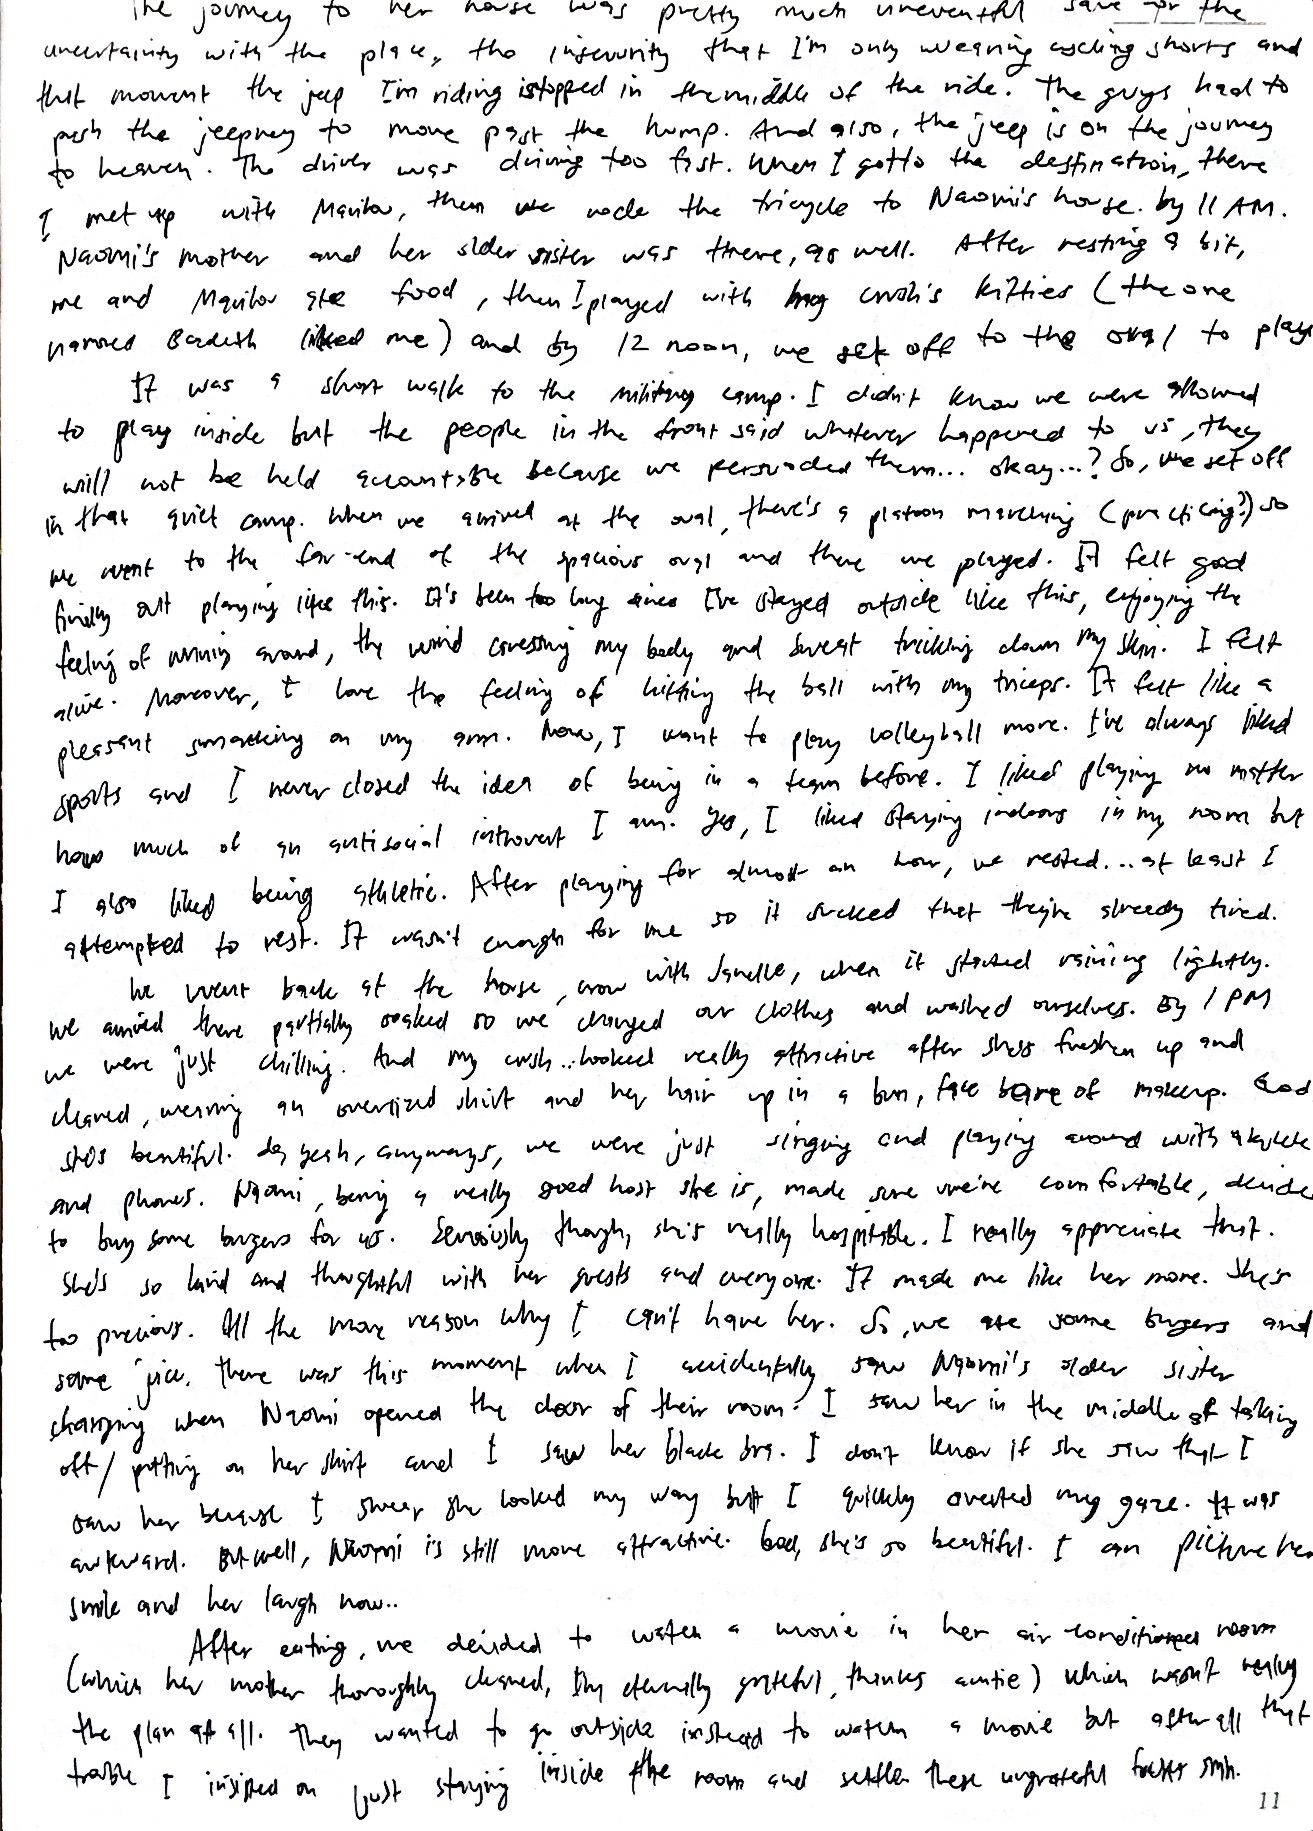 The journey to her house was pretty much uneventful save for the
uncertainty with the place, the insecurity that I'm only wearing cycling shorts and
that moment the jeep I'm riding stopped in the middle of the ride. The guys had to
push the jeepney to move past the hump. And also, the jeep is on the journey
to heaven. The driver was driving too fast. When I got to the destination, there
I met up with Marilou, then we rode the tricycle to Naomi's house. by 11 AM.
Naomi's mother and her older sister was there, as well. After resting a bit,
me and Marilou ate food, then I played with my crush's kitties (the one
named liked me) and by 12 noon, we set off to the oval to play
It was a short walk to the military camp. I didn't know we were allowed
to play inside but the people in the front said whatever happened to us, they
will not be held accountable because we persuaded them... okay...? So, we set off
in that quiet camp. When we arrived at the oval, there's a platoon marching (practicing?) so
we went to the far-end of the spacious oval and there we played. It felt good
finally out playing like this. It's been too long since I've stayed outside like this, enjoying the
feeling of running around, the wind caressing my body and sweat trickling down my skin. I felt
alive. Moreover, I love the feeling of hitting the ball with my triceps. It felt like a
pleasant smacking on my arm. Now, I want to play volleyball more. I've always liked
sports and I never closed the idea of being in a team before. I liked playing no matter
how much of an antisocial introvert I am. Yes, I liked staying indoors in my room but
I also liked being athletic. After playing for almost an hour, we rested... at least I
attempted to rest. It wasn't enough for me so it sucked that they're already tired.
We went back at the house, now with Janelle, when it started raining lightly.
We arrived there partially soaked so we changed our clothes and washed ourselves. By 1 PM
we were just chilling. And my crush... looked really attractive after she's freshen up and
cleaned, wearing an oversized shirt and her hair up in a bun, face bare of makeup. God
she's beautiful. yeah, anyways, we were just singing and playing around with ukulele
and phones. Naomi, being a really good host she is, made sure we're comfortable, decide
to buy some burgers for us. Seriously though, she's really hospitable. I really appreciate that.
She's so kind and thoughtful with her guests and everyone. It made me like her more. She's
too precious. All the more reason why I can't have her. So, we ate some burgers and
some juice. There was this moment when I accidentally saw Naomi's older sister
changing when Naomi opened the door of their room. I saw her in the middle of taking
off/putting on her shirt and I saw her black bra. I don't know if she saw that I
saw her because I swear she looked my way but I quickly averted my gaze. It was
awkward. But well, Naomi is still more attractive. God, she's so beautiful. I can picture her
smile and her laugh now..
After eating, we decided to watch a movie in her air conditioned room
(which her mother thoroughly cleaned, I'm eternally grateful, thanks auntie) which wasn't really
the plan at all. They wanted to go outside instead to watch a movie but after all that
trouble I insisted on just staying inside the room and settle these ungrateful fucks smh.
11